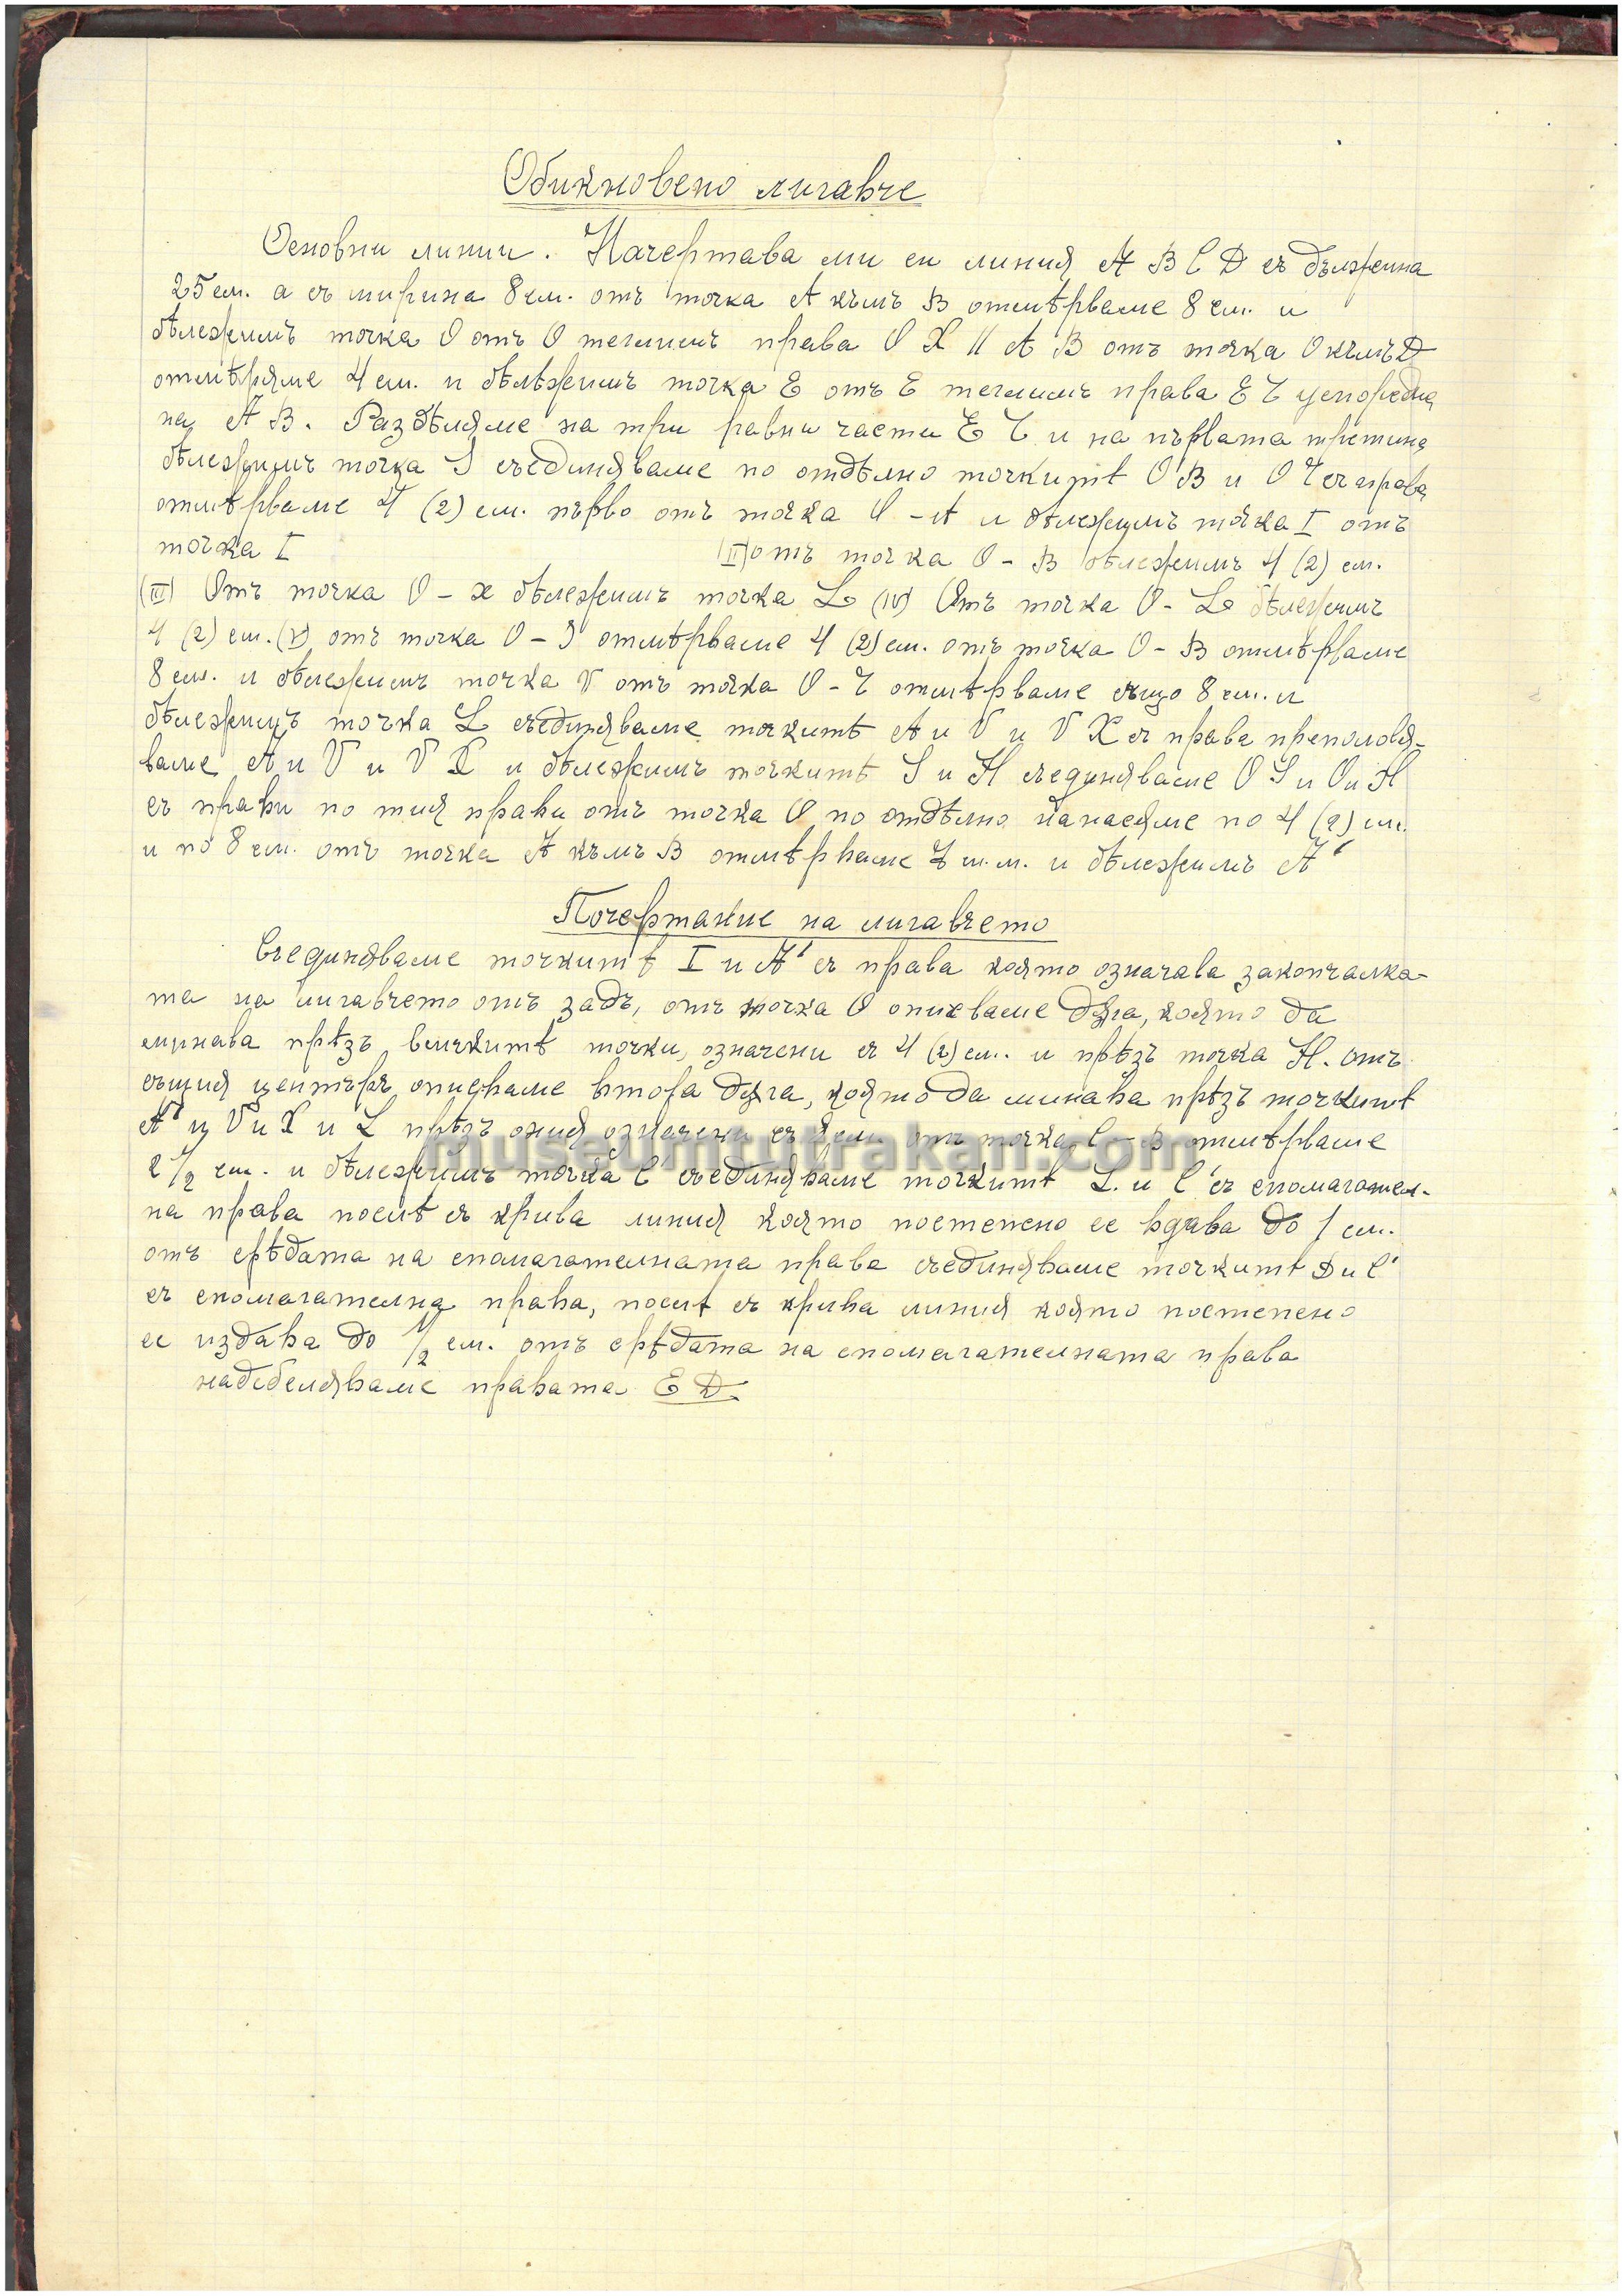 Обикновено лигавче
Основни линии. Начертава ми си линия A B C D съ дължина
25 см. а съ ширина 8 см. отъ точка A къмъ B отмѣрваме 8 см. и
бѣлежимъ точка O отъ O теглимъ права O X || A B отъ точка O къмъ D
отмѣряме 4 см. и бѣлѣжимъ точка E отъ E теглимъ права E Ч успоредна
на A B. Раздѣляме на три равни части E Ч и на първата третина
бѣлежимъ точка I съединяваме по отдѣлно точкитѣ O B и O Ч съ права
отмѣрваме 4 (2) см. първо отъ точка O - A и бѣлежимъ точка I отъ
точка I (II) отъ точка O - B бѣлежимъ 4 (2) см.
(III) Отъ точка O - x бѣлежимъ точка L (IV) Отъ точка O - L бѣлежимъ
4 (2) см. (V) отъ точка O - I отмѣрваме 4 (2) см. отъ точка O - B отмѣрваме
8 см. и бѣлежимъ точка V отъ точка O - Ч отмѣрваме също 8 см. и
бѣлежимъ точка L съединяваме точкитѣ A и V и V X съ права преполовя-
ваме A и V и V X и бѣлежимъ точкитѣ S и H съединяваме O S и O и H
съ прави по тия прави отъ точка O по отдѣлно нанасяме по 4 (2) см.
и по 8 см. отъ точка A къмъ B отмѣрваме м.м. и бѣлежимъ A'
Почертание на лигавчето
Съединяваме точкитѣ I и A' съ права която означава закопчалка-
та на лигавчето отъ задъ, отъ точка O описваме дъга, която да
минава прѣзъ всичкитѣ точки, означени съ 4 (2) см. и прѣзъ точка H. отъ
същия центъръ описваме втора дъга, която да минава прѣзъ точкитѣ
A' и V и X и L прѣзъ ония означени съ 8 см. отъ точка C - B отмѣрваме
2 1/2 см. и бѣлежимъ точка C' съединяваме точкитѣ L. и C' съ спомагател-
на права послѣ съ крива линия която постепено се вдава до 1 см.
отъ срѣдата на спомагателната права съединяваме точкитѣ D и C'
съ спомагателна права, послѣ съ крива линия която постепено
се издава до 1/2 см. отъ срѣдата на спомагателната права
надебеляваме правата E D.
museumtutrakan.com